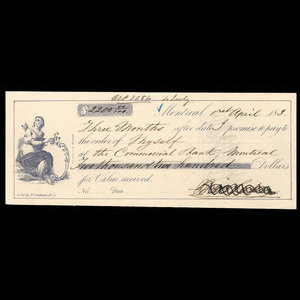 $2200
Montreal 1st April 1863
Three Months after date I promise to pay to
the order of Myself
at the Commercial Bank, Montreal
Two Thousand Two Hundred Dollars
for Value received
No. Due